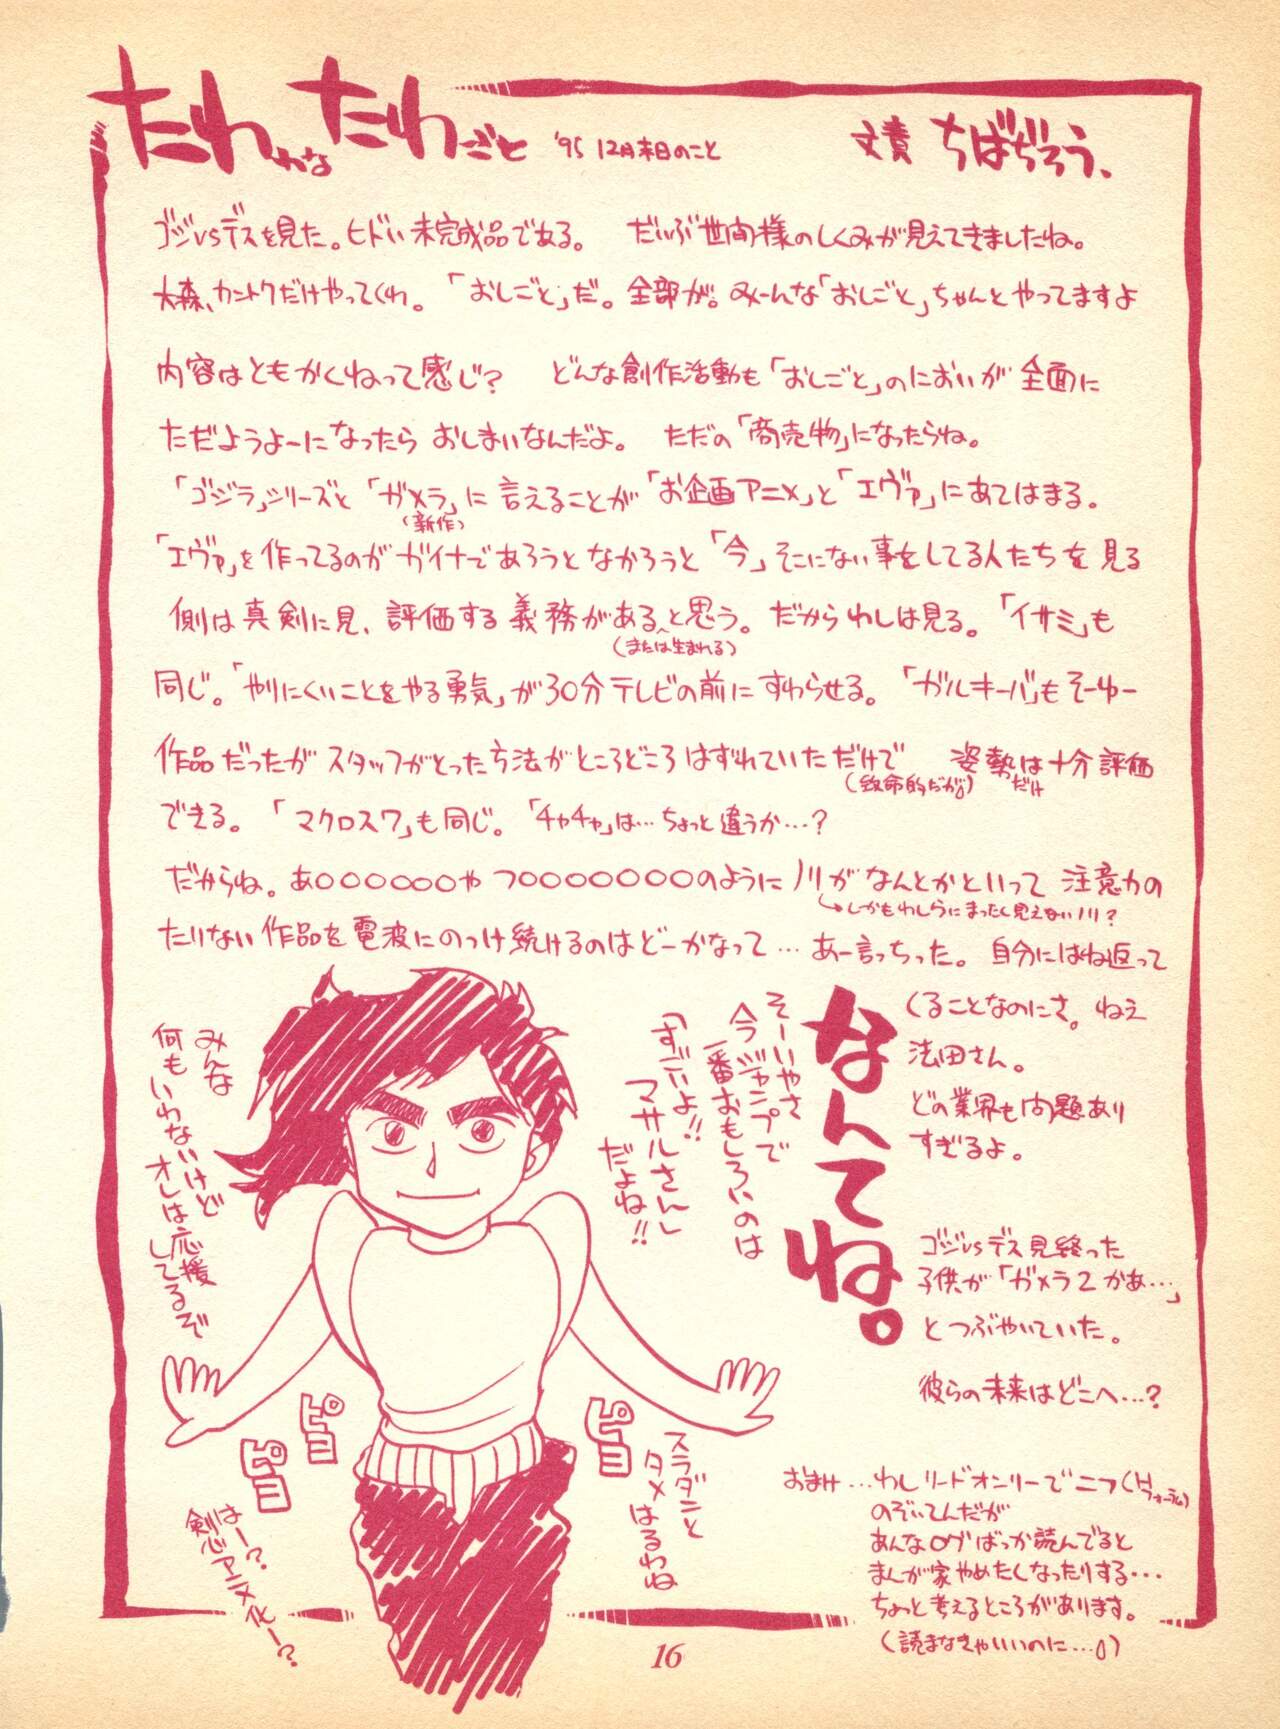 たわわな たわごと '95 12月末日のこと 文責 ちばぢろう、
ゴジvsデスを見た。ヒドい未完成品である。 だいぶ世間様のしくみが見えてきましたね。
大森、カントクだけやってくれ。「おしごと」だ。全部が。みーんな「おしごと」ちゃんとやってますよ
内容はともかくねって感じ? どんな創作活動も「おしごと」のにおいが全面に
ただようよーになったらおしまいなんだよ。 ただの「商売物」になったらね。
「ゴジラ」シリーズと「ガメラ」に言えることが「お企画アニメ」と「エヴァ」にあてはまる。
(新作)
「エヴァ」を作ってるのがガイナであろうとなかろうと「今」そこにない事をしてる人たちを見る
側は真剣に見、評価する義務があると思う。だからわしは見る。「イサミ」も
(または生まれる)
同じ。「やりにくいことをやる勇気」が30分テレビの前にすわらせる。「ガルキーバ」もそーゆー
作品だったがスタッフがとった方法がところどころはずれていただけで 姿勢は十分評価
(致命的だが。) だけ
できる。「マクロス7」も同じ。「チャチャ」は…ちょっと違うか…?
だからね。あ○○○○○○やつ○○○○○○○○のようにノリがなんとかといって注意力の
↳しかもわしらにまったく見えないノリ?
たりない作品を電波にのっけ続けるのはどーかなって…あー言っちった。自分にはね返って
くることなのにさ。ねえ
法田さん。
どの業界も問題あり
すぎるよ。
なんてね。
ゴジvsデス見終った
子供が「ガメラ2かあ…」
とつぶやいていた。
彼らの未来はどこへ…?
そーいやさ
今ジャンプで
一番おもしろいのは
「すごいよ!!
マサルさん」
だよね!!
みんな
何もいわないけど
オレは応援
してるぞ
ピヨ
ピヨ
ピヨ
スラダンと
タメはるわね
はー?
剣心アニメ化ー?
おまけ…わしリードオンリーでニフ(フォーラム)
のぞいてんだが
あんなログばっか読んでると
まんが家やめたくなったりする…
ちょっと考えるところがあります。
(読まなきゃいいのに…。)
16